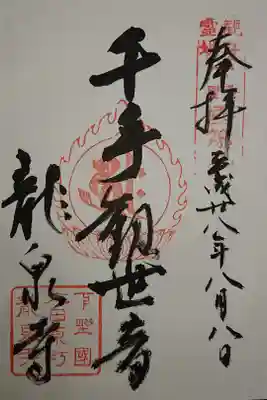 奉拝
平成廿八年八月八日
千手観世音
龍泉寺
下野國